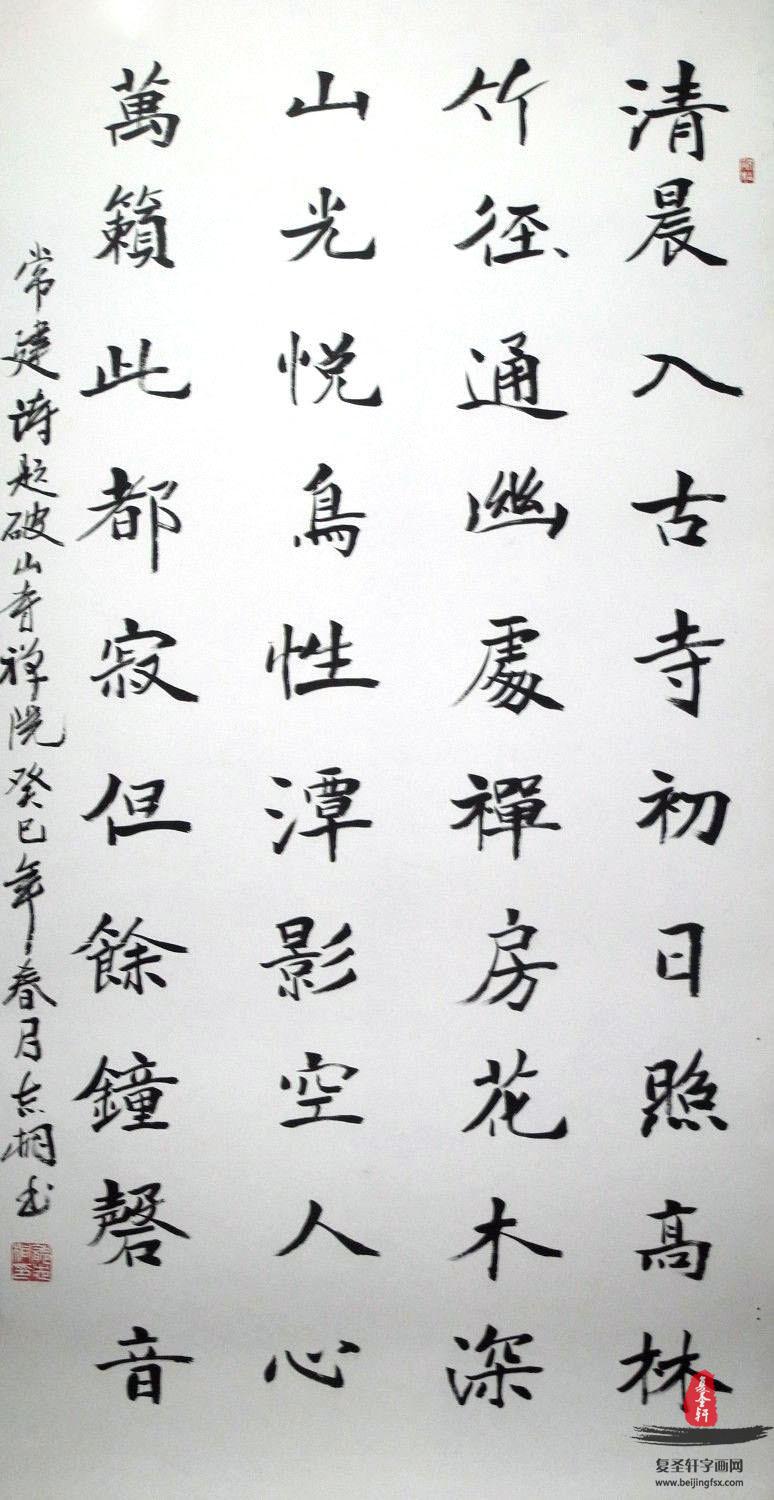 清晨入古寺初日照高林
竹径通幽處禪房花木深
山光悦鳥性潭影空人心
萬籟此都寂但餘鐘磬音
常建诗题破山寺禅院癸巳年春月志桐书
复圣轩
复圣轩字画网
www.beijingfsx.com